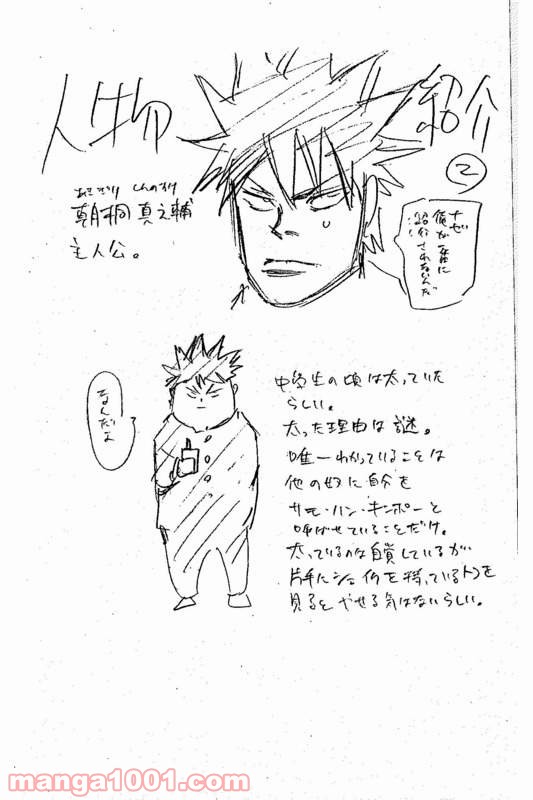 人物紹介
②
あさぎり しんのすけ
朝桐 真之輔
主人公。
ナゼ
俺が一番に
紹介されないんだ…
なんだよ
中学生の頃は太っていた
らしい。
太った理由は謎。
唯一わかっていることは
他の奴に自分を
サモ・ハン・キンポーと
呼ばせていることだけ。
太っているのな自負しているが
片手にジュースを持っているトコを
見るとやせる気はないらしい。
manga1001.com